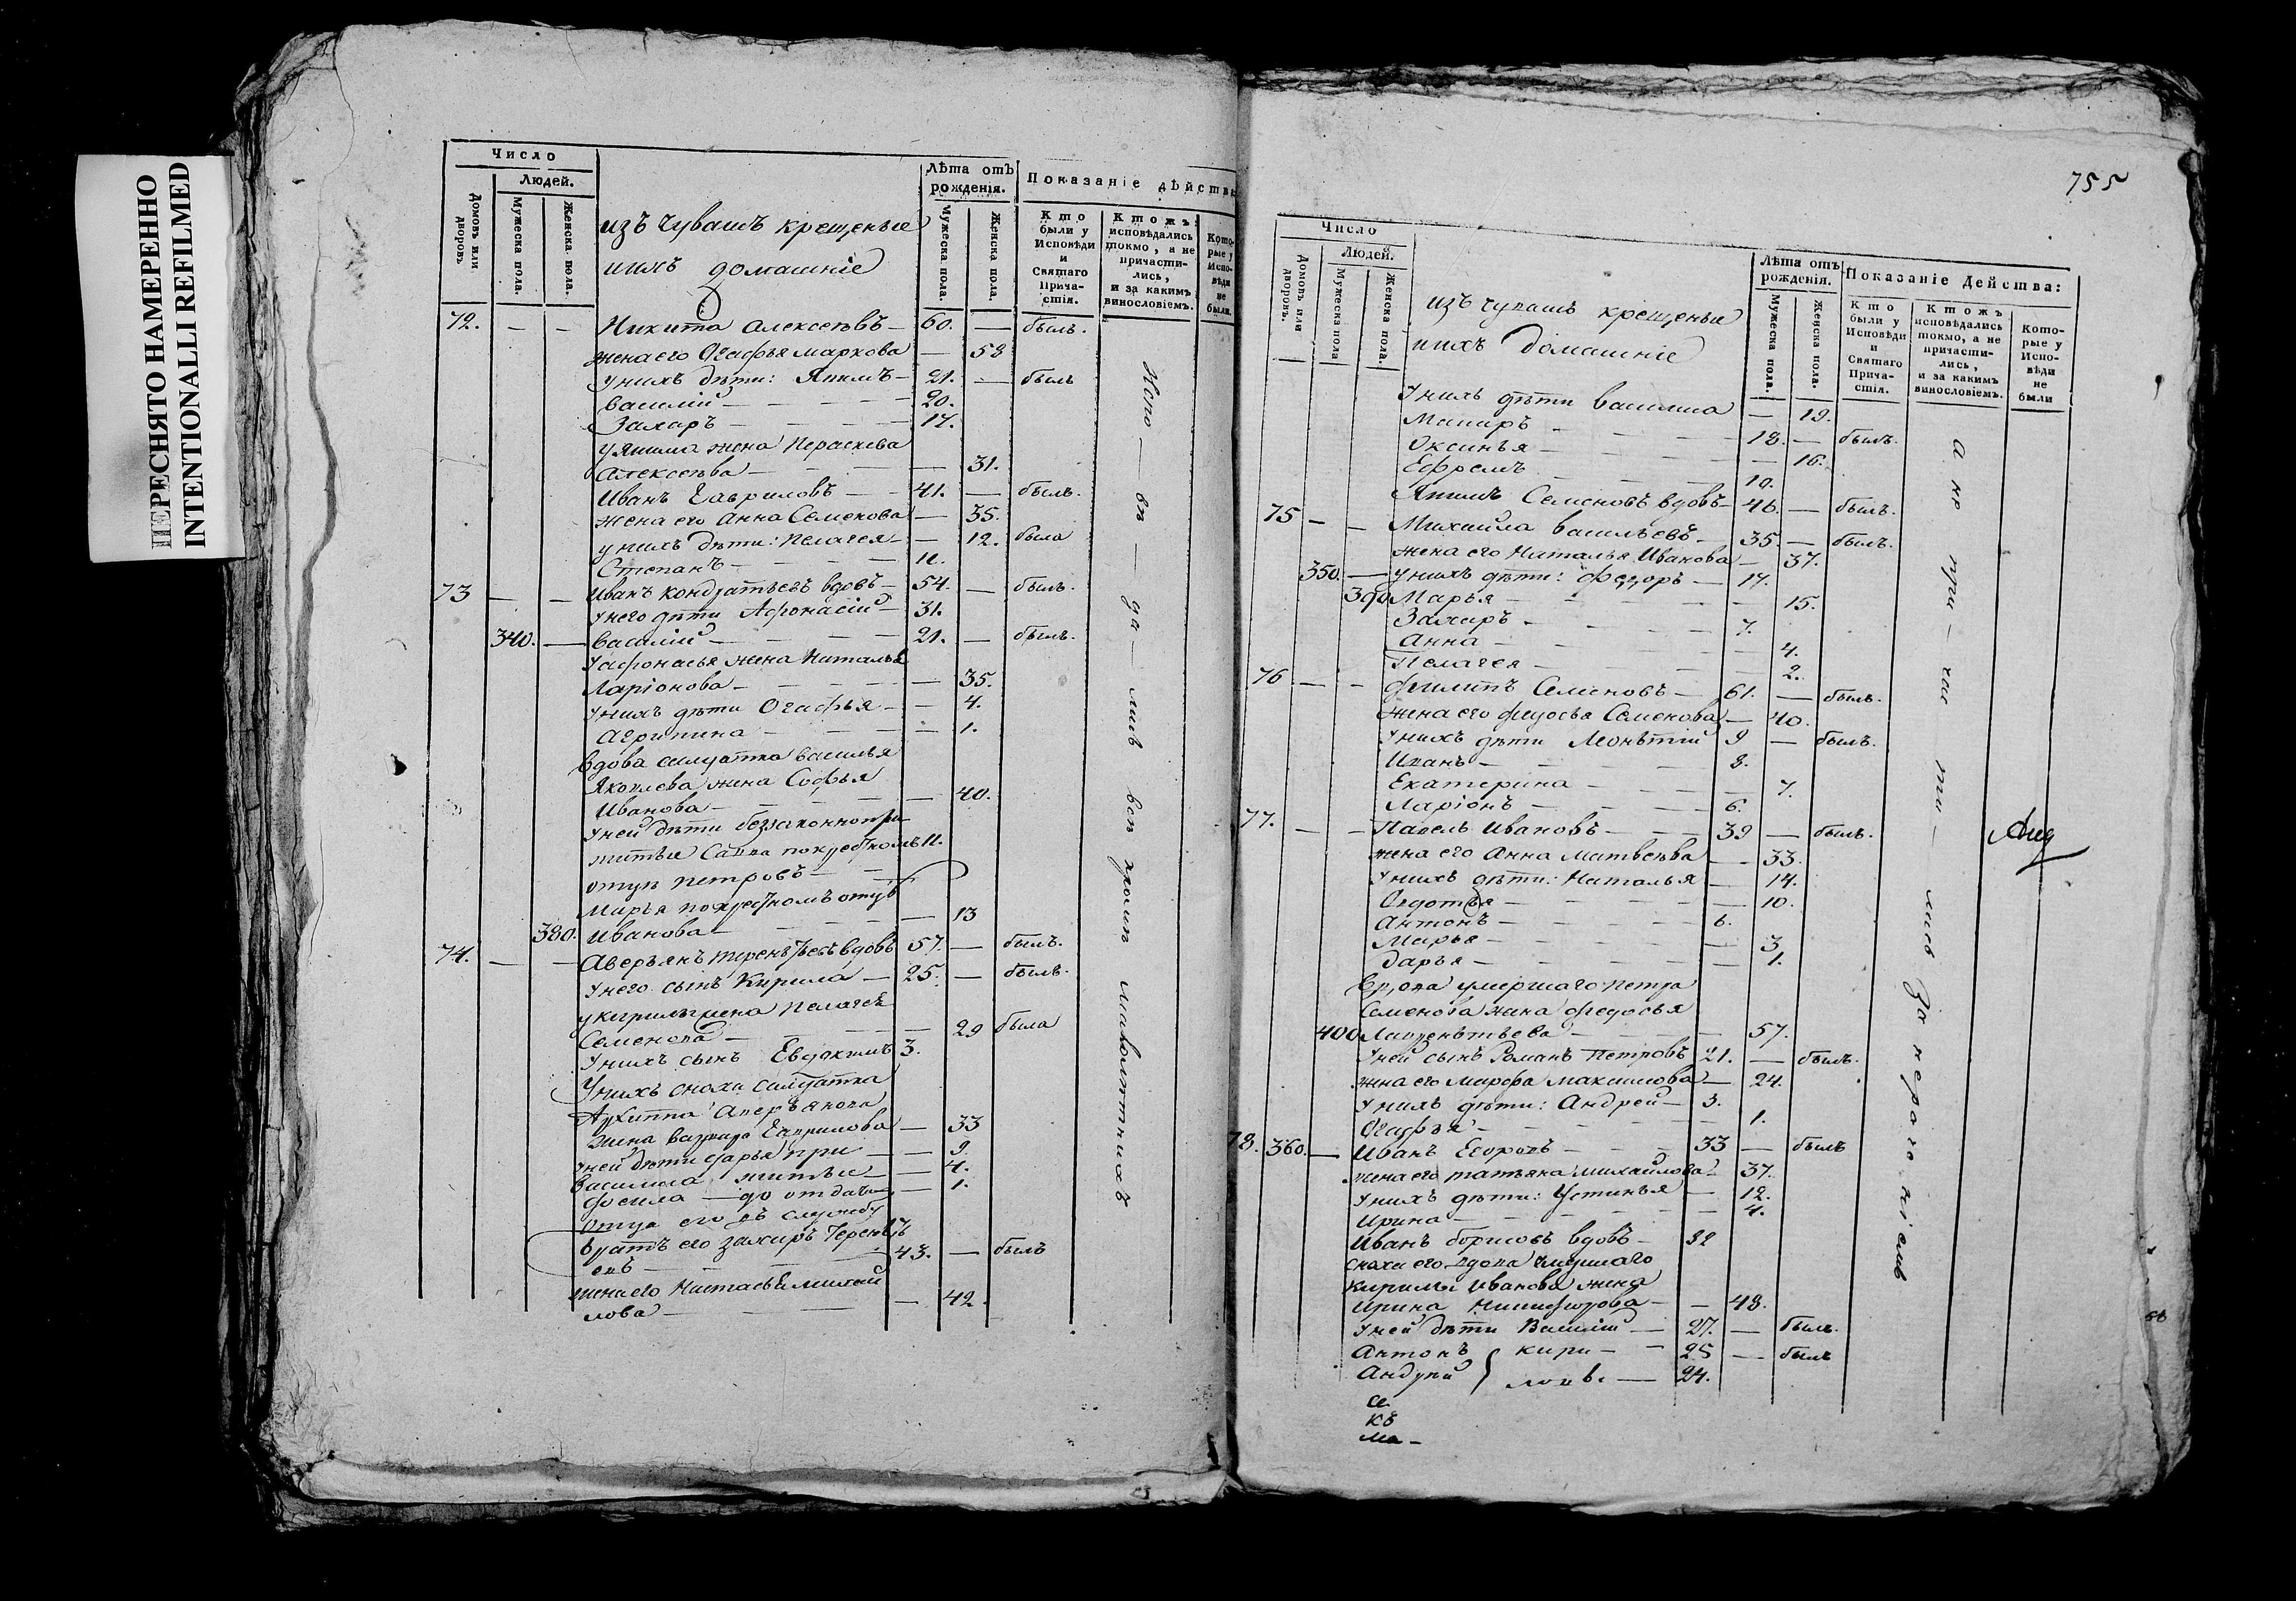 ПЕРЕСНЯТО НАМЕРЕННО
INTENTIONALLI REFILMED
Число
Людей.
Домовъ или дворовъ.
Мужеска пола.
Женска пола.
изъ чувашъ крещеные
ихъ домашніе
Лѣта отъ рожденія.
Мужеска пола.
Женска пола.
Показаніе дѣйств
Кто были у Исповѣди и Святаго Прича-стія.
Ктожъ исповѣдались токмо, а не причасти-лись, и за какимъ винословіемъ.
Кото-рые у Испо-вѣди не были.
72. — — Никита Алексеевъ — 60. — былъ.
жена его Огафья Маркова — 58
у нихъ дѣти: Якимъ — 21. — былъ
Василій — 20.
Захаръ — 17.
у Якима жена Параскева
Алексеева — 31.
Иванъ Гавриловъ — 41. — былъ.
жена его Анна Семенова — 35.
у нихъ дѣти: Пелагея — 12. была
Степанъ — 11.
73 — — Иванъ Кондратьевъ вдовъ — 54. — былъ.
у него дѣти Афонасій — 31.
340. — Василій — 21. — былъ.
у Афонасья жена Наталья
Ларіонова — 35.
у нихъ дѣти Огафья — 4.
Агрипина — 1.
вдова салдатка Василья
Яковлева жена Софья
Иванова — 40.
у ней дѣти беззаконнопри
житые Савва по крестномъ 11.
отцу Петровъ —
Марья по крестномъ отцу
380. Иванова — 13
74. — — Аверьянъ Терентьевъ вдовъ 57. — былъ.
у него сынъ Кирила — 25. — былъ.
у Кирилы жена Пелагея
Семенова — 29 была
у нихъ сынъ Евдокимъ 3.
у нихъ сноха салдатка
Архипа Аверьянова
жена Варвара Гаврилова — 33
у ней дѣти Дарья при — 9.
Василиса житые — 4.
до отдачи — 1.
отца его въ службу
братъ его Захаръ Теренть
евъ — 43. — былъ
жена его Настасья Михай
лова — 42.
Испо — вѣ — да — лись все кромѣ малолѣтнихъ
755
Число
Людей.
Домовъ или дворовъ.
Мужеска пола
Женска пола.
изъ чувашъ крещеные
ихъ домашніе
Лѣта отъ рожденія.
Мужеска пола.
Женска пола.
Показаніе Действа:
Кто были у Исповѣди и Святаго Прича-стія.
Ктожъ исповѣдались токмо, а не причасти-лись, и за какимъ винословіемъ.
Кото-рые у Испо-вѣди не были
у нихъ дѣти Василиса — 19.
Макаръ — 18. — былъ.
Оксинья — 16.
Ефремъ — 10.
Якимъ Семеновъ вдовъ — 46. — былъ.
75 — — Михаила Васильевъ — 35. — былъ.
жена его Наталья Иванова — 37.
350. — у нихъ дѣти: Федоръ — 17.
390 Марья — 15.
Захаръ — 7.
Анна — 4.
Пелагея — 2.
76 — — Филипъ Семеновъ — 61. — былъ.
жена его Федосья Семенова — 40.
у нихъ дѣти Леонътій 9 — былъ.
Иванъ — 8.
Екатерина — 7.
Ларіонъ — 6.
77. — — Павелъ Ивановъ — 39 — былъ.
жена его Анна Матвеева — 33.
у нихъ дѣти: Наталья — 14.
Овдотья — 10.
Антонъ — 6.
Марья — 3.
Дарья — 1.
вдова умершаго Петра
Семенова жена Федосья
400 Лаврентьева — 57.
у ней сынъ Романъ Петровъ 21. — былъ.
жена его Марфа Максимова — 24.
у нихъ дѣти: Андрей — 3.
Огафья — 1.
78. 360. — Иванъ Егоровъ — 33 — былъ
жена его Татьяна Михайлова — 37.
у нихъ дѣти: Устинья — 12.
Ирина — 4.
Иванъ Борисовъ вдовъ — 82
сноха его вдова умершаго
Кирилы Иванова жена
Ирина Никифорова — 48.
у ней дѣти Василій — 27. — былъ.
Антонъ } кири — 25 — былъ
Андрей } ловы — 24.
а не при — час — ти — лись за нерачениемъ
се
къ
ма —